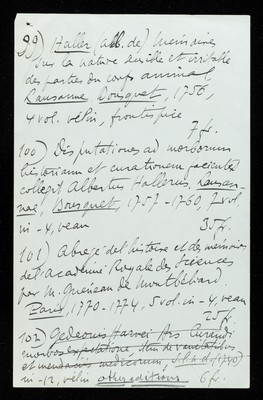 99) Haller (Alb. de) Mémoires
sur la nature sensible et irritable
des parties du corps animal
Lausanne Bousquet, 1756,
4 vol. vélin, frontispice
7 fr.
100) Disputationes ad morborum
historiam et curationem facientes
collegit Albertus Hallerus, Lausan-
nae, Bousquet, 1757-1760, 7 vol.
in-4, veau
35 fr.
101) Abrégé de l'histoire et des mémoires
de l'Académie Royale des Sciences
par M. Gueneau de Montbébard.
Paris, 1770-1774, 5 vol. in-4, veau
25 fr.
102) Gedeonis Harvei Ars Curandi
morbos expectatione, item de vanitatibus
et mendaciis medicorum, S.l.a.d. (1730)
in-12, vélin other editions 6 fr.